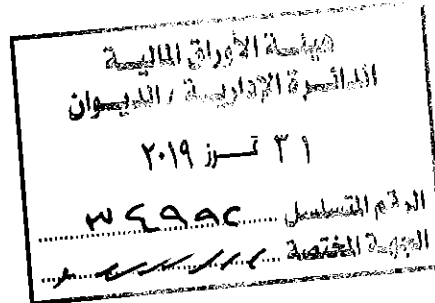 هيئة الأوراق المالية
الدائرة الإدارية / الديوان
٣١ تموز ٢٠١٩
الرقم المتسلسل ٣٤٩٩٢
الجهة المختصة